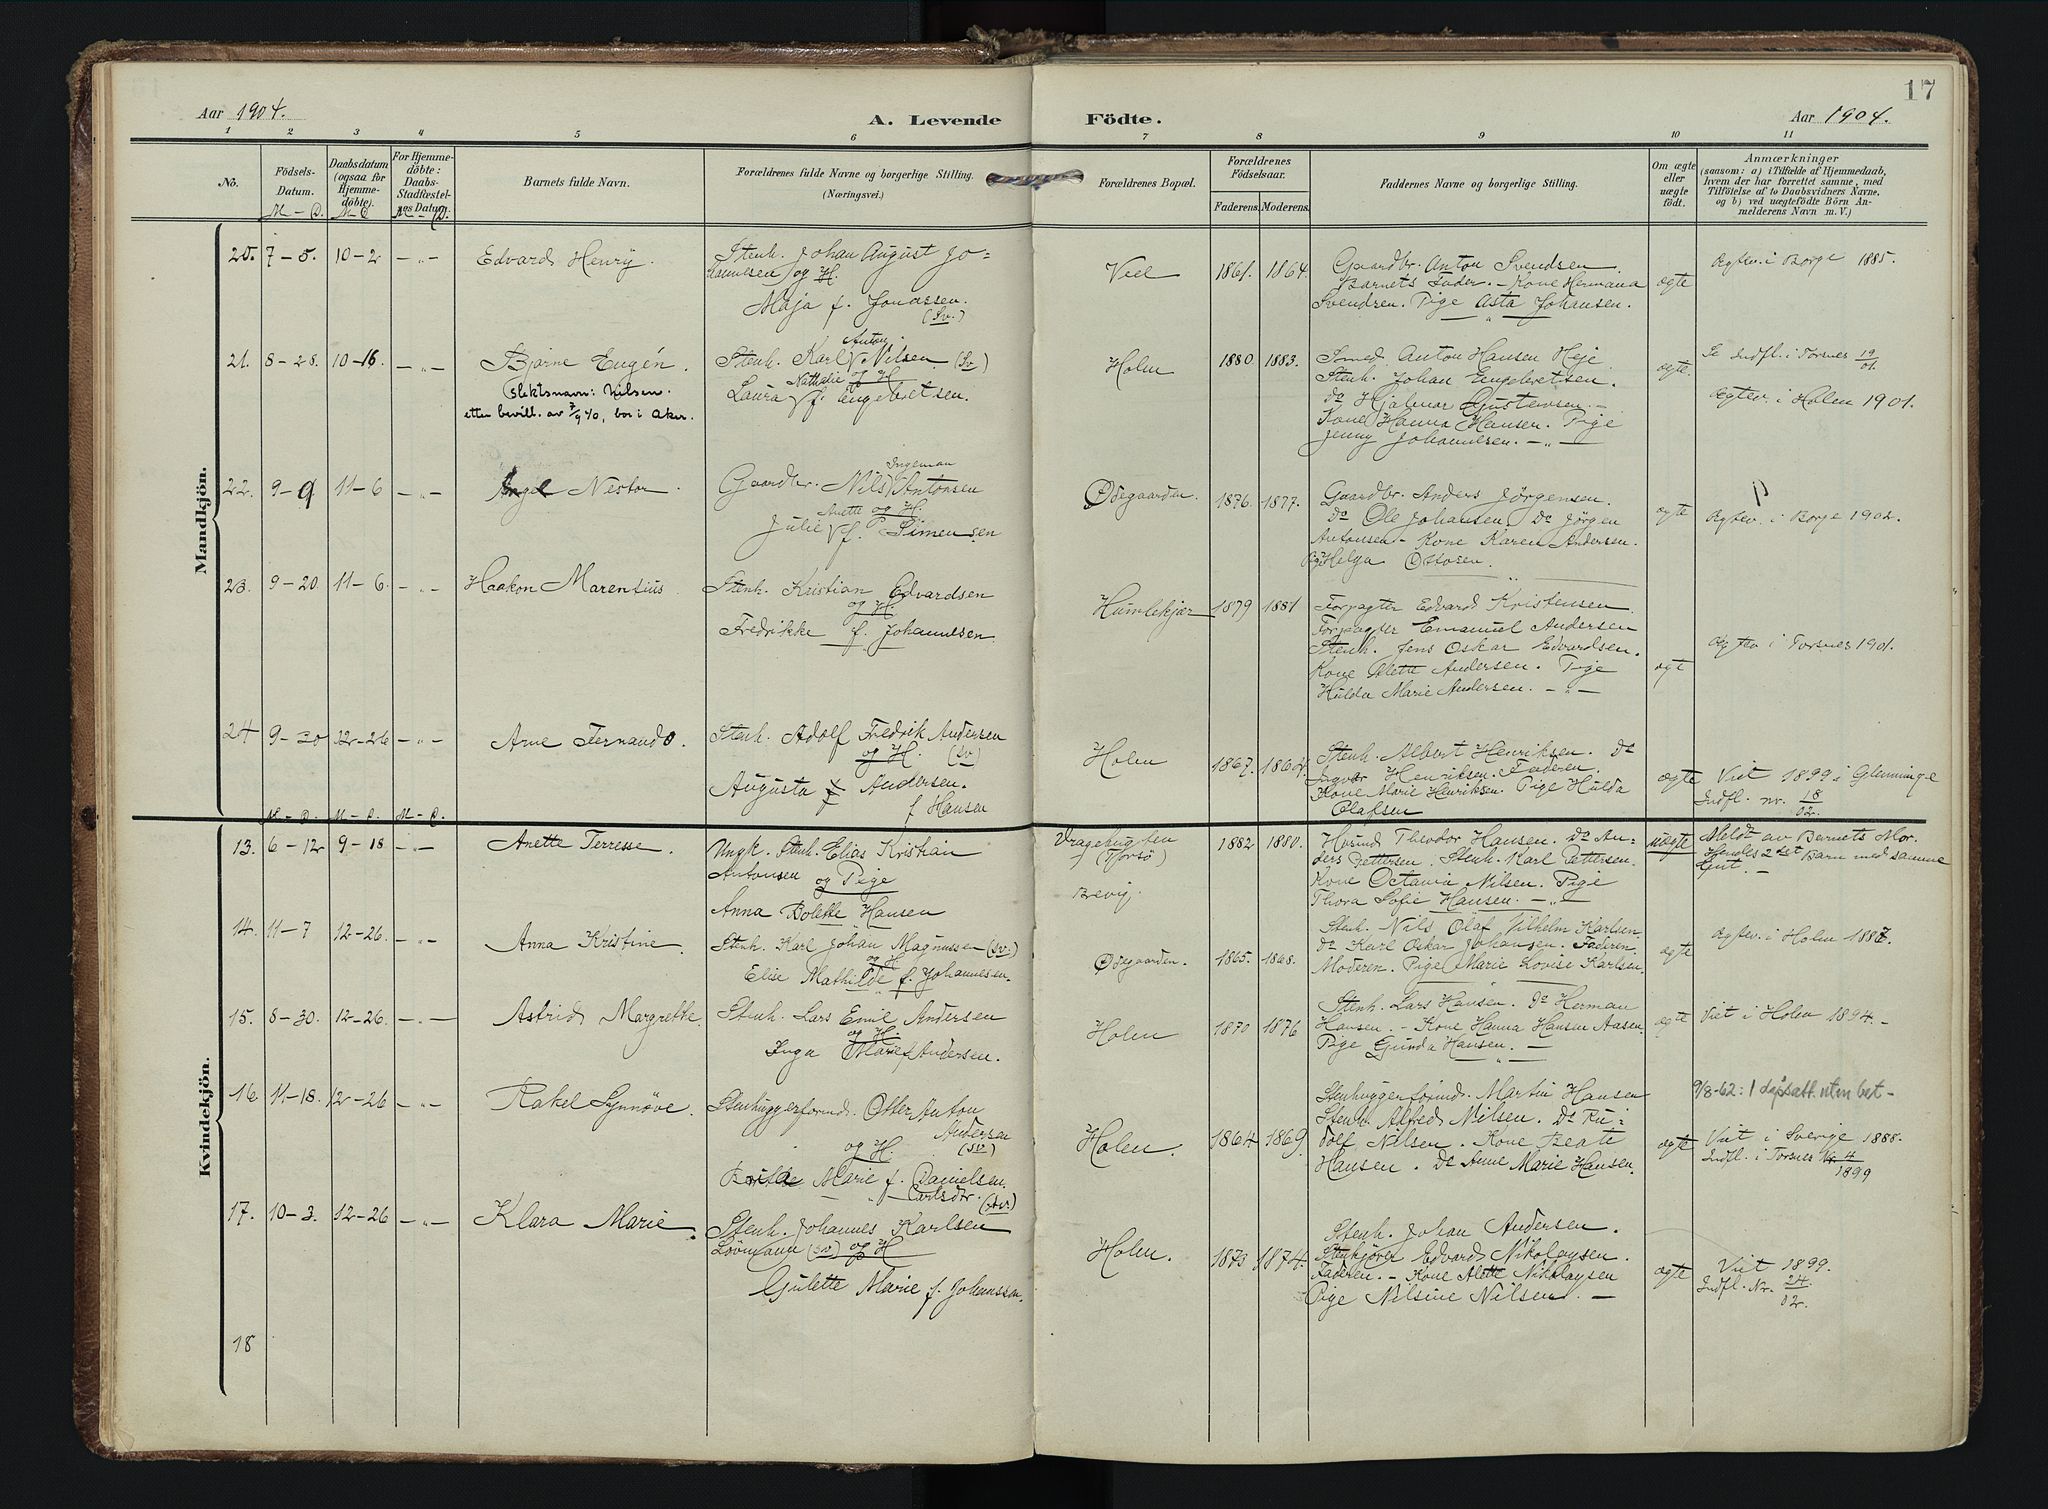 17
Aar 1904. A. Levende Födte. Aar 1904.
1 2 3 4 5 6 7 8 9 10 11
No.
Födsels-
Datum.
M – D.
Daabsdatum
(ogsaa for
Hjemme-
döbte).
For Hjemme-
döbte:
Daabs-
Stadfæstel-
ses Datum.
M – D.
Barnets fulde Navn.
Forældrenes fulde Navne og borgerlige Stilling.
(Næringsvei.)
Forældrenes Bopæl.
Forældrenes
Födselsaar.
Faderens. Moderens.
Faddernes Navne og borgerlige Stilling.
Om ægte
eller
uægte
födt.
Anmærkninger
(saasom: a) i Tilfælde af Hjemmedaab,
hvem der har forrettet samme, med
Tilföielse af to Daabsvidners Navne,
og b) ved uægtefödte Börn An-
melderens Navn m. V.)
Mandkjön.
20. 7–5. 10–2 –„– Edvard Henry.
Stenh. Johan August Jo-
hannesen og H.
Maja f. Jonassen.
(Sv.)
Viel 1861. 1864
Gaardbr. Anton Svendsen.
Barnets Fader. – Kone Hermana
Svendsen. Pige Asta Johansen.
ægte
Ægtev. i Borge 1885.
21. 8–28. 10–16 –„– Bjarne Eugén.
slektsnavn: Nilsen.
etter bevill. av 7/9 40, bor i Aker.
Anton
Stenh. Karl V Nilsen. (Sv)
Nathalie og H
Laura V f. Engebretsen.
Holm 1880 1883.
Smed Anton Hansen Heje
Stenh. Johan Engebretsen.
Do Hjalmar Gustavsen. –
Kone Hanna Hansen. Pige
Jenny Johannesen. –„–
ægte.
Se Indfl. i Torsnes 19/01.
Ægtev. i Holen 1901.
22. 9–9 11–6 –„– Angel Nestor.
Ingeman
Gaardbr. Nils V Antonsen
Anette og H.
Julie V f. Simensen
Ødegaarden. 1876. 1877.
Gaardbr. Anders Jörgensen.
Do Ole Johansen. Do Jörgen
Antonsen – Kone Karen Andersen.
Pige Helga Ottosen.
ægte
Ægtev. i Borge 1902.
23. 9–20. 11–6 –„– Haakon Marentius.
Stenh. Kristian Edvardsen
og H.
Fredrikke f. Johannesen
Humlekjær 1879 1881
Forpagter Edvard Kristensen.
Forpagter Emanuel Andersen
Stenh. Jens Oskar Edvardsen.
Kone Alette Andersen. Pige
Hulda Marie Andersen. –„–
ægte
Ægtev i Torsnes 1901.
24 9–20 12–26 –„– Arne Fernando.
Stenh. Adolf Fredrik Andersen
og H. (sv)
Augusta f Andersen.
f Hansen
Holen 1867. 1864.
Stenh. Albert Henriksen. Do
Ingvar Henriksen. Faderen.
Kone Marie Henriksen. Pige Hulda
Olafsen
ægte
Viet 1899 i Glemminge
Indfl. nr. 18/02.
M – D. M – D. M – D.
Kvindekjön.
13. 6–12 9–18 –„– Anette Terresse.
Ungk. Stenh. Elias Kristian
Antonsen og Pige
Anna Bolette Hansen
(Torsö)
1882 1880.
Husmd Theodor Hansen. Do An-
ders Pettersen. Stenh. Karl Pettersen.
Kone Octavia Nilsen. Pige
Thora Sofie Hansen. –„–
uægte
Meldt av Barnets Mor.
Hendes 2det Barn med samme
Gut. –
14. 11–7 12–26. –„– Anna Kristine.
Stenh. Karl Johan Magnussen (sv.)
og H.
Elise Mathilde f. Johannesen.
Ødegaarden. 1865. 1868.
Stenh. Nils Olaf Vilhelm Karlsen
Do Karl Oskar Johansen. Faderen
Moderen. Pige Marie Lovise Karlsen
ægte
Ægtev. i Holm 1887.
15. 8–30. 12–26. –„– Astrid Margrethe.
Stenh. Lars Emil Andersen
og H.
Inga Marie f Andersen.
Holen 1870 1876
Stenh. Lars Hansen. Do Herman
Hansen. – Kone Hanna Hansen Aasen
Pige Gunda Hansen. –„–
ægte
Viet i Holm 1894. –
16 11–18. 12–26 –„– Rakel Synnöve.
Stenhuggerformd. Otter Anton
Andersen
og H. (sv)
Marie f. Danielsen.
Carlsdtr.
Holen. 1864 1869.
Stenhuggerformd. Martin Hansen
Stenh. Alfred Nilsen. Do Ru-
dolf Nilsen. Kone Beate
Hansen. Do Anne Marie Hansen.
ægte
9/8-62: 1 dåpsatt. uten bet–
Viet i Sverige 1888.
Indfl. i Torsnes Nr. 4/1899
17. 10–3. 12–26 –„– Klara Marie.
(sv.)
Stenh. Johannes Karlsen
Lövmann (sv) og H
Gulette Marie f. Johannsen.
Holen. 1873 1874.
Stenh. Johan Andersen.
Stenkjörer Edvard Nikolaysen.
Faderen. – Kone Alette Nikolaysen
Pige Nilsine Nilsen. –
ægte
Viet 1899.
Indfl. Nr. 24/02.
18